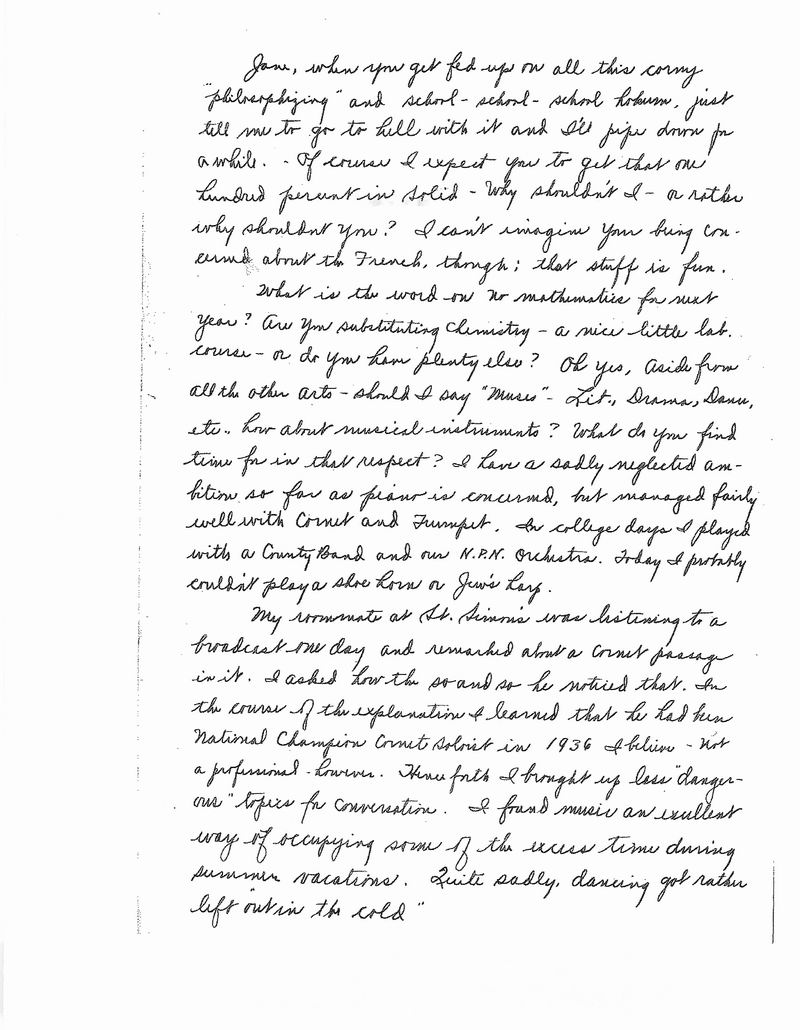 Jane, when you get fed up on all this corny
"philosophizing" and school-school-school hokum, just
tell me to go to hell with it and I'll pipe down for
a while. - Of course I expect you to get that one
hundred percent in Solid - Why shouldn't I - or rather
why shouldnt you? I can't imagine your being con-
cerned about the French, though; that stuff is fun.
What is the word on no mathematics for next
year? Are you substituting Chemistry - a nice little lab.
course - or do you have plenty else? Oh yes, Aside from
all the other arts - should I say "Muses" - Lit., Drama, Dance,
etc.. how about musical instruments? What do you find
time for in that respect? I have a sadly neglected am-
bition so far as piano is concerned, but managed fairly
well with Cornet and Trumpet. In college days I played
with a County Band and our N.P.N. Orchestra. Today I probably
couldn't play a shoe horn or Jew's harp.
My roommate at St. Simons was listening to a
broadcast one day and remarked about a Cornet passage
in it. I asked how the so and so he noticed that. In
the course of the explanation I learned that he had been
National Champion Cornet Soloist in 1936 I believe - Not
a professional - however. Hence forth I brought up less "danger-
ous" topics for conversation. I found music an excellent
way of occupying some of the excess time during
summer vacations. Quite sadly, dancing got rather
left "out in the cold"